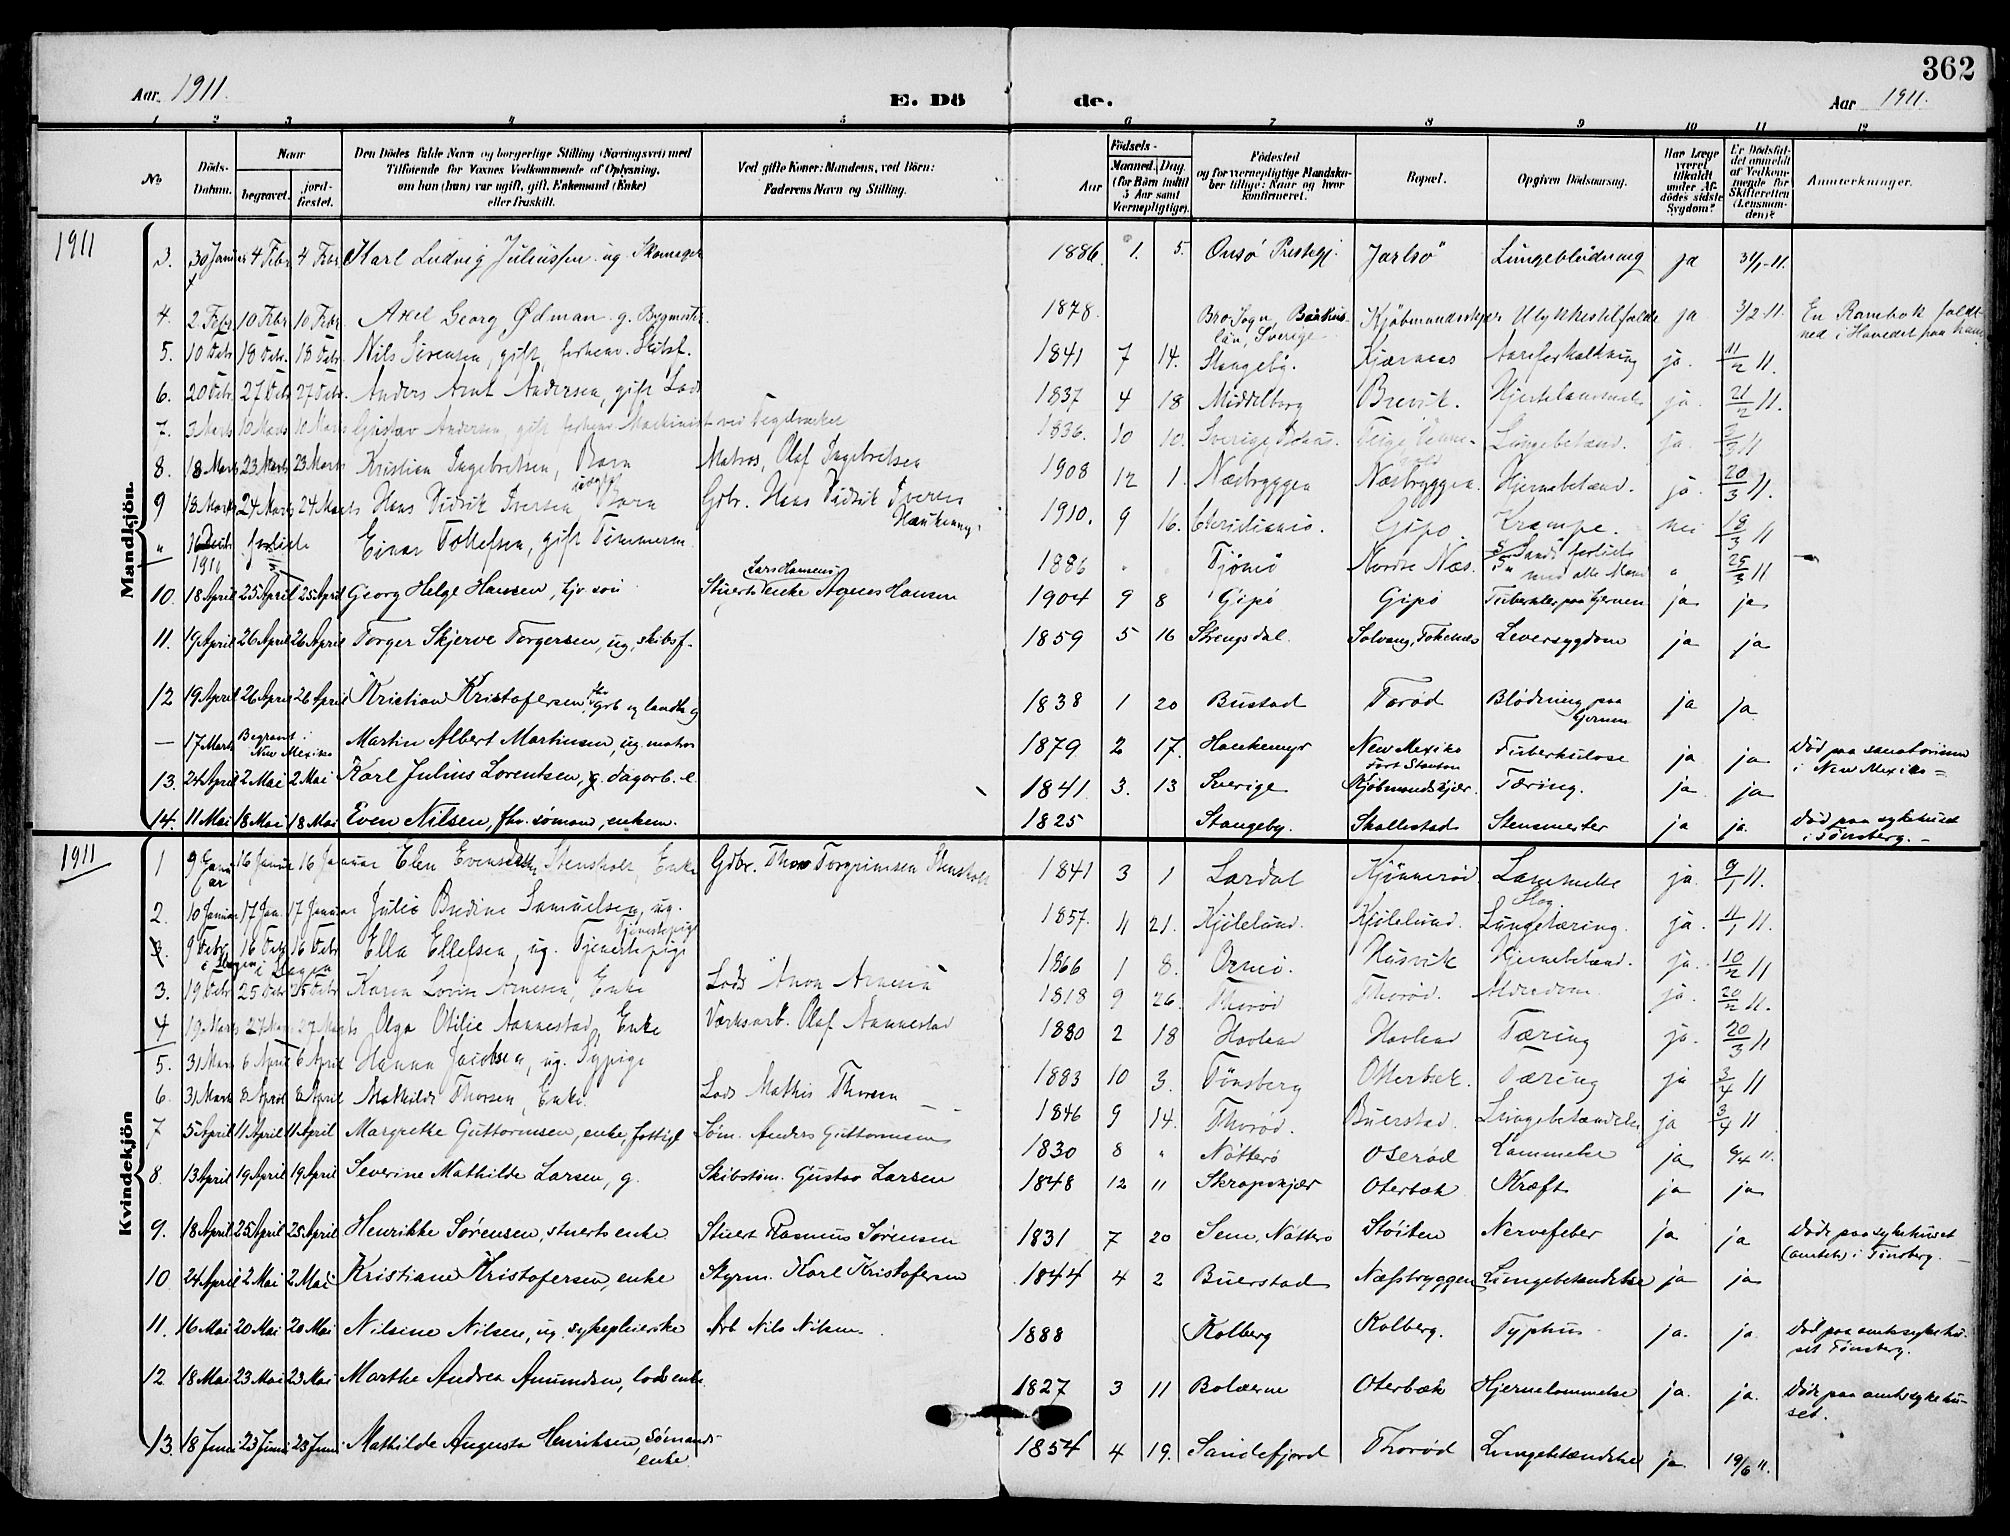 362
Aar 1911. E. Dö de. Aar 1911.
1 2 3 4 5 6 7 8 9 10 11 12
No. Döds-Datum. Naar begravet. jord-fæstet. Den Dödes fulde Navn og borgerlige Stilling (Næringsvei) med Tilföiende for Voxnes Vedkommende af Oplysning, om han (hun) var ugift, gift, Enkemand (Enke) eller fraskilt. Ved gifte Koner: Mandens, ved Börn: Faderens Navn og Stilling. Födsels- Aar Maaned. Dag. (for Börn indtil 5 Aar samt Værnepligtige). Födested og for værnepligtige Mandskaber tillige: Naar og hvor konfirmeret. Bopæl. Opgiven Dödsaarsag. Har Læge været tilkaldt under Afdödes sidste Sygdom? Er Dödsfaldet anmeldt af Vedkommende for Skifteretten (Lensmanden)? Anmerkninger.
Mandkjön.
1911
3. 30 Januar 4 Febr 4 Febr Karl Ludvig Juliussen ug. 1886. 1. 5. Onsø Prestegj. Jarlsö Lungeblødning ja 31/1-11.
4. 2 Febr 10 Febr 10 Febr Axel Georg Ødman g. Bygmester 1878. Bro Sogn Län, Sverige Kjøbmandsskjær Ulykkestilfælde ja 3/2-11. En Rambok faldt ned i Hovedet paa ham
5. 10 Febr 18 Febr. 18 Febr. Nils Sørensen, gift, forhenv. Skibsf. 1841 7 14. Stangeby. Kjærnes Aareforkalkning ja. 11/2 11.
6. 20 Febr 27 Febr 27 Febr. Anders Arnt Andersen, gift Lods 1837 4 18 Middelborg Brevik. Hjertelammelse ja. 21/2 11.
7. 3 Marts 10 Marts 10 Marts Gustav Andersen, gift forhenv Maskinist ved Teglverket 1836. 10 10. Sverige Lungebetænd. ja. 3/3 11
8. 18 Marts 23 Marts 23 Marts Kristian Ingebretsen, Barn Matros, Olaf Ingebretsen 1908 12 1. Næsbryggen Næsbryggen. Hjernebetænd. ja. 20/3 11.
9 18 Marts 24 Marts 24 Marts Hans Didrik Iversen uægte Barn Gdbr. Hans Didrik Iversen Haukemyr 1910. 9 16. Christiania. Gipø. Krampe. nei 18/3 11
" 1910 forliste Einar Tollefsen, gift Tømmerm. 1886 " " Tjømø Nordre Næs. forliste med alle Mand " 25/3 11 —
10. 18 April 25 April 25 April Georg Helge Hansen, hjv. søn Lars Hansens Stuerts enke Agnes Hansen 1904 9 8 Gipø Gipø Tuberkler paa hjernen ja ja
11. 19 April 26 April 26 April Torger Skjerve Torgersen, ug. skibsf. 1859 5 16 Strengsdal. Solvang, Tokenes Leversygdom ja ja
12 19 April 26 April 26 April Kristian Kristofersen fhv grb og landh g 1838 1 20 Bustad Torød Blødning paa hjernen ja ja
— 17 Marts Begravet i New Mexico Martin Albert Martinsen, ug. matros 1879 2 17. Haukemyr New Mexiko Fort Stanton Tuberkulose ja ja Død paa sanatorium i New Mexiko —
13. 24 April 2 Mai 2 Mai Karl Julius Lorentsen, g. dagarb. e. 1841. 3. 13 Sverige Kjøbmandskjær. Tæring. ja ja
14. 11 Mai 18 Mai 18 Mai Even Nilsen, fhv. sømand, enkem. 1825 Stangeby. Skallestad Stensmerter ja ja. Død paa sykehuset i Tønsberg. —
Kvindekjön
1911
1 9 Januar 16 Januar 16 Januar Elen Evensdatter Stensholt, Enke Gdbr. Thor Torgrimsen Stensholt 1841 3 1 Lardal Kjønnerød. Lammelse ja. 9/1 11.
2. 10 Januar 17 Jan. 17 Januar Julie Bredine Samuelsen, ug. Tjenestepige 1857. 11 21. Kjølelund. Kjølelund. Slag Lungetæring. ja. 11/1 11.
3. 9 Febr i Slagen 16 Febr i Slagen 16 Febr Ella Ellefsen, ug. Tjenestepige 1866 1 8. Ormø. Husvik Hjernebetænd. ja. 10/2 11
3. 19 Febr 25 Febr 25 Febr Karen Lovise Arnesen, Enke Lods Aron Arnesen 1818 9 26. Thorød Thorød. Alderdom. ja. 20/2 11.
4 19 Marts 27 Mars 27 Marts Olga Otilie Aannestad, Enke Værksarb. Olaf Aannestad 1880 2 18 Havland Havland Tæring ja. 20/3 11
5. 31 Mars 6 April 6 April Hanna Jacobsen, ug. Sypige 1883 10 3. Tønsberg Otterbæk. Tæring ja 3/4 11
6. 31 Mars 8 April 8 April Mathilde Thorsen, Enke. Lods Mathis Thorsen 1846 9 14. Thorød. Buerstad. Lungebetændelse ja 3/4 11
7 5 April 11 April 11 April Margrethe Guttormsen, enke, fattigl Søm. Anders Guttormsen 1830 8 " Nøtterø Oserød Lammelse ja 6/4 11.
8. 13 April 19 April 19 April Severine Mathilde Larsen, g. Skibstøm. Gustav Larsen 1848 12 11 Skrapskjær Oterbæk Kræft ja ja
9. 18 April 25 April 25 April Henrikke Sørensen, stuerts enke Stuert Rasmus Sørensen 1831 7 20 Sem, Nøtterø Støiten Nervefeber ja ja Død paa sykehuset (amtets) i Tønsberg. —
10. 24 April 2 Mai 2 Mai Kristiane Kristofersen, enke Styrm. Karl Kristofersen 1844 4 2 Buerstad Næsbryggen Lungebetændelse ja ja
11. 16 Mai 20 Mai 20 Mai Nilsine Nilsen, ug. sykepleierske Arb Nils Nilsen. 1888 Kolberg Kolberg. Typhus ja. ja Død paa amtssykehuset Tønsberg.
12. 18 Mai 23 Mai 23 Mai Marthe Andrea Amundsen, lods enke. 1827 3 11 Bolærne Oterbæk Hjernelammelse ja. ja. Død paa amtssykehuset.
13. 18 Juni 23 Juni 23 Juni Mathilde Augusta Henriksen, sømands enke 1854 4 19. Sandefjord Thorød Lungebetændelse ja 19/6 11.